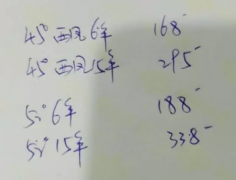 45° 西凤 6年 168-
45° 西凤 15年 295-
52° 6年 188-
52° 15年 338-